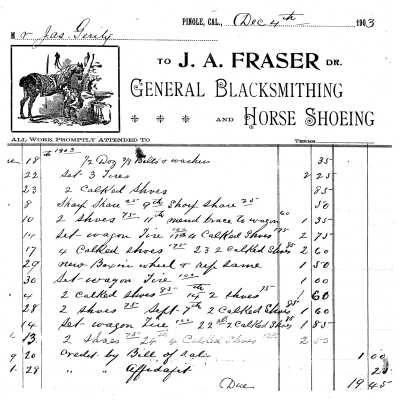 PINOLE, CAL., Dec 4th 1903
Mr Jas. Gerity
TO J. A. FRASER DR.
GENERAL BLACKSMITHING
AND HORSE SHOEING
ALL WORK PROMPTLY ATTENDED TO TERMS
1903
18 1/2 Doz Bolts & washers 35
22 Set 3 Tires 2 25
23 2 Calked Shoes 85
8 Sharp Share 25 9th Sharp Share 25 50
10 2 Shoes 75 11th mend brace to wagon 60 1 35
14 Set wagon Tire 100 4 Calked Shoes 175 2 75
17 4 Calked shoes 175 23 2 Calked Shoes 85 2 60
29 new Box in wheel & rep same 1 50
30 Set wagon Tire 100 1 00
4 2 Calked shoes 85 14th 2 shoes 75 1 60
28 2 shoes 75 Sept 7th 2 Calked Shoes 85 1 60
14 Set wagon Tire 100 22nd 2 Calked Shoes 85 1 85
13 2 Shoes 75 4 Calked Shoes 2
9 20 Credit by Bill of sale 1 00
1 28 " " Affidafit 25
Due 19 45